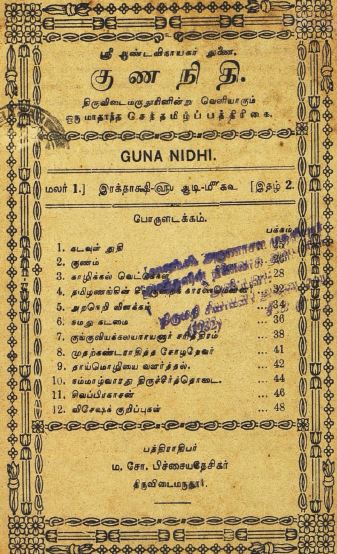 ஸ்ரீ ஆண்டவிநாயகர் துணை.
குணநிதி.
திருவிடைமருதூரினின்று வெளியாகும்
ஒரு மாதாந்த செந்தமிழ்ப்பத்திரிகை.
GUNA NIDHI.
மலர் 1.] இரக்தாக்ஷி ஆடி [இதழ் 2.
பொருளடக்கம்.
பக்கம்
1. கடவுள் துதி
2. குணம்
3. காழிக்கல் வெட்டுகள் ... 28
4. தமிழணங்கின் காரணமென்ன ... 32
5. அறநெறி விளக்கம் ... 34
6. நமது கடமை ... 36
7. குங்குலியக்கலயநாயனார் சரித்திரம் ... 38
8. முதற்கண்டராதித்த சோழதேவர் ... 41
9. தாய்மொழியை வளர்த்தல். ... 42
10. நம்மாழ்வாரது திருச்சீர்த்தொடை. ... 44
11. சிவப்பிரகாசன் ... 46
12. விசேஷக் குறிப்புகள் ... 48
(1952)
பத்திராதிபர்
ம. சோ. பிச்சையதேசிகர்
திருவிடைமருதூர்.